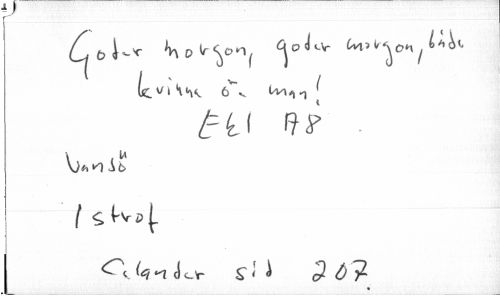 Goder morgon, goder morgon, både
kvinna ö. man!
Ekl A8
Vansö
1 strof
Celander sid 207.